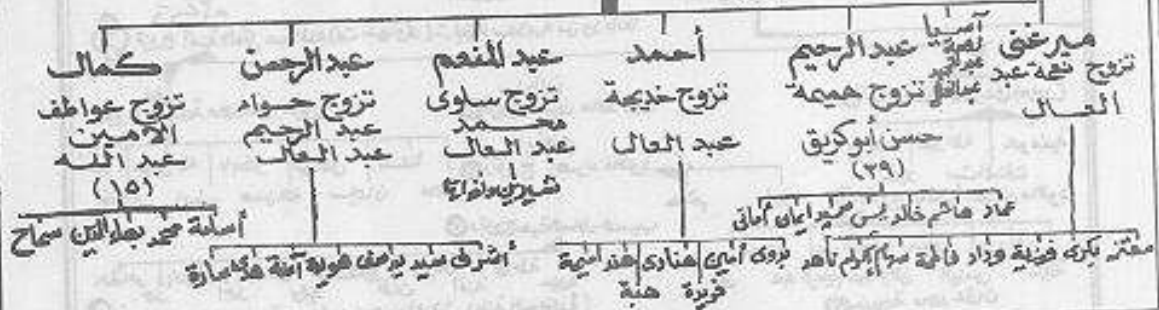 ميرغنى
تزوج نعمة عبد
العال
آسيا
عبد الرحيم
تزوج حميمة
حسن أبوكريق
(٣٩)
أحمد
تزوج خديجة
عبد العال
عبد المنعم
تزوج سلوى
محمد
عبد العال
عبد الرحمن
تزوج حواء
عبد الرحيم
عبد العال
كمال
تزوج عواطف
الأمين
عبد الله
(١٥)
عماد هاشم خالد إيمان أمانى
بكرى فوزية وداد فاطمة سهام ناهد
هنادى هند
فريدة هبة
أشرف سيد يوسف هويدا آمنة هدى سارة
أسامة محمد بهاء الدين سماح